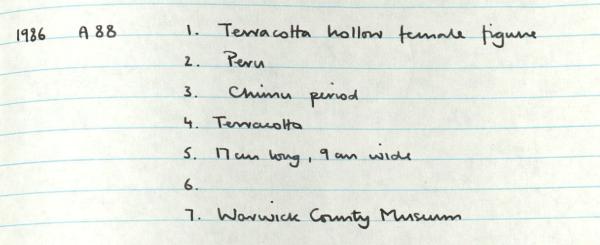 1986 A 88 1. Terracotta hollow female figure
2. Peru
3. Chimu period
4. Terracotta
5. 17 cm long, 9 cm wide
6.
7. Warwick County Museum